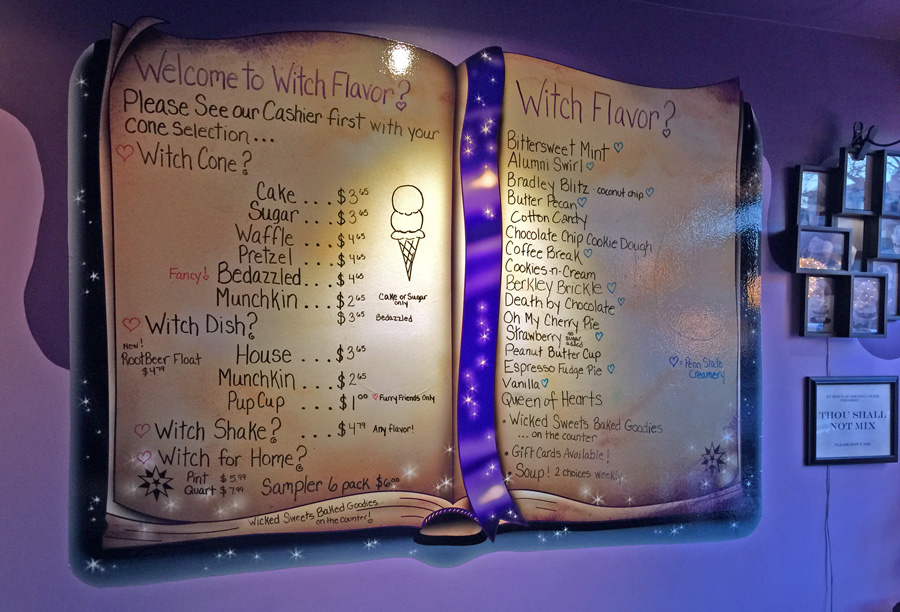 Welcome to Witch Flavor?
Please See our Cashier first with your
cone selection...
Witch Cone?
Cake ... $3.65
Sugar ... $3.65
Waffle ... $4.65
Pretzel ... $4.65
Fancy! Bedazzled ... $4.65
Munchkin ... $2.65 Cake or Sugar only
$3.65 Bedazzled
Witch Dish?
New!
RootBeer Float
$4.79
House ... $3.65
Munchkin ... $2.65
Pup Cup ... $1.00 Furry Friends Only
Witch Shake? .... $4.79 Any flavor!
Witch for Home?
Pint $5.99
Quart $7.99
Sampler 6 pack $6.00
Wicked Sweets Baked Goodies
on the counter!
Witch Flavor?
Bittersweet Mint
Alumni Swirl
Bradley Blitz - coconut chip
Butter Pecan
Cotton Candy
Chocolate Chip Cookie Dough
Coffee Break
Cookies-n-Cream
Berkley Brickle
Death by Chocolate
Oh My Cherry Pie
Strawberry no sugar added
Peanut Butter Cup
Espresso Fudge Pie
Vanilla
Queen of Hearts
= Penn State
Creamery
Wicked Sweets Baked Goodies
... on the counter
Gift Cards Available!
Soup! 2 choices weekly
THOU SHALL
NOT MIX